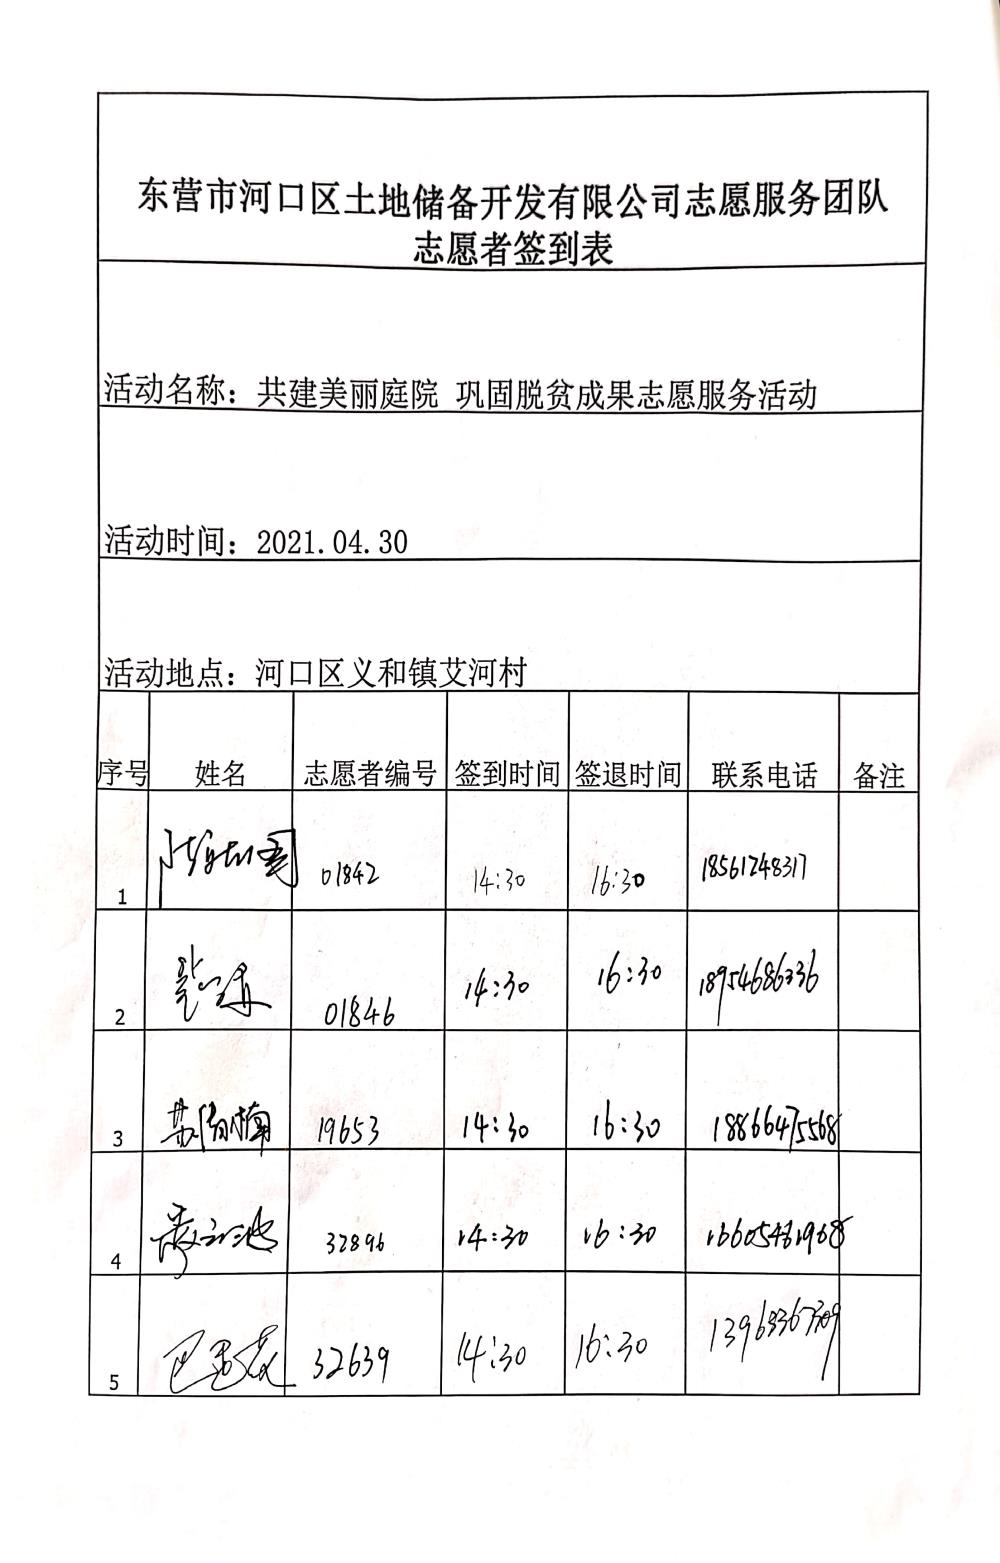 东营市河口区土地储备开发有限公司志愿服务团队
志愿者签到表
活动名称：共建美丽庭院 巩固脱贫成果志愿服务活动
活动时间：2021.04.30
活动地点：河口区义和镇艾河村
序号 姓名 志愿者编号 签到时间 签退时间 联系电话 备注
1 01842 14:30 16:30 18561248317
2 01846 14:30 16:30 18954686336
3 苏楠 19653 14:30 16:30 18866475568
4 32896 14:30 16:30
5 32639 14:30 16:30